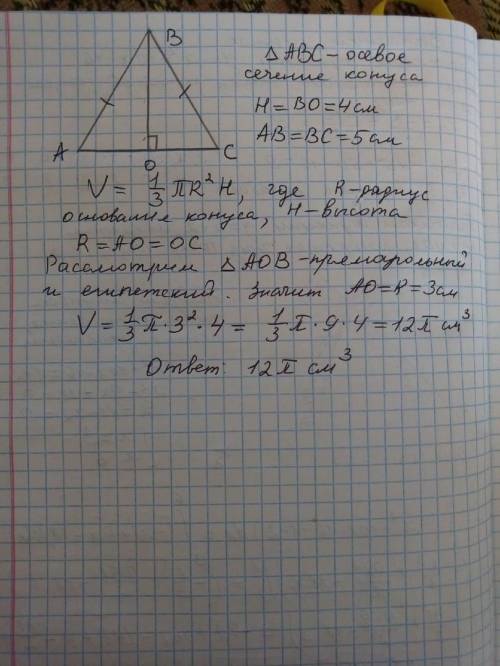 B
△ABC - осевое
сечение конуса
H = BO = 4 см
AB = BC = 5 см
A
C
O
V = 1/3 πR²H, где R - радиус
основания конуса, H - высота
R = AO = OC
Рассмотрим △AOB - прямоугольный
и египетский. Значит AO = R = 3 см
V = 1/3 π · 3² · 4 = 1/3 π · 9 · 4 = 12π см³
Ответ: 12π см³